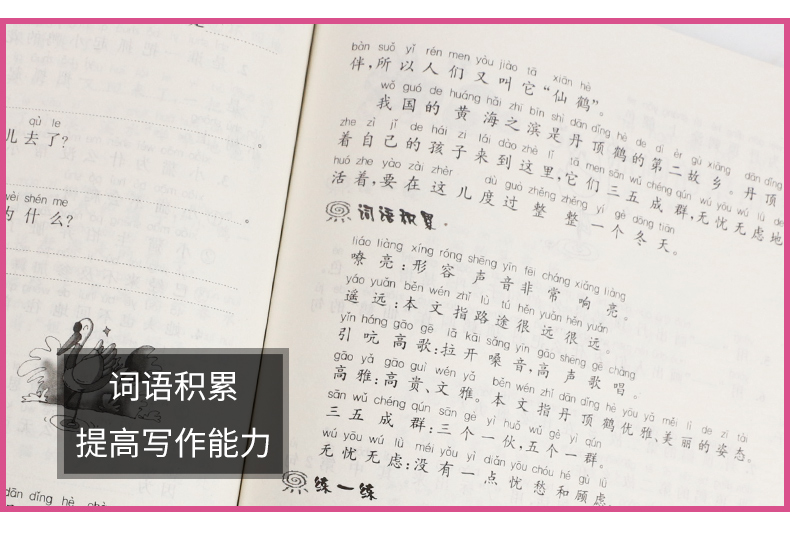 qù le
儿去了?
。
wèi shén me
为什么?
。
dān dǐng hè
bàn suǒ yǐ rén men yòu jiào tā xiān hè
伴,所以人们又叫它“仙鹤”。
wǒ guó de huáng hǎi zhī bīn shì dān dǐng hè de dì èr gù xiāng dān dǐng
我国的黄海之滨是丹顶鹤的第二故乡。丹顶
zhe zì jǐ de hái zi lái dào zhè lǐ tā men sān wǔ chéng qún wú yōu wú lǜ de
着自己的孩子来到这里,它们三五成群,无忧无虑地
huó zhe yào zài zhèr dù guò zhěng zhěng yí gè dōng tiān
活着,要在这儿度过整整一个冬天。
词语积累
liáo liàng xíng róng shēng yīn fēi cháng xiǎng liàng
嘹亮:形容声音非常响亮。
yáo yuǎn běn wén zhǐ lù tú hěn yuǎn hěn yuǎn
遥远:本文指路途很远很远。
yǐn háng gāo gē lā kāi sǎng yīn gāo shēng gē chàng
引吭高歌:拉开嗓音,高声歌唱。
gāo yǎ gāo guì wén yǎ běn wén zhǐ dān dǐng hè yōu yǎ měi lì de zī tài
高雅:高贵、文雅。本文指丹顶鹤优雅、美丽的姿态。
sān wǔ chéng qún sān gè yì huǒ wǔ gè yì qún
三五成群:三个一伙,五个一群。
wú yōu wú lǜ méi yǒu yì diǎn yōu chóu hé gù lǜ
无忧无虑:没有一点忧愁和顾虑
练一练
词语积累
提高写作能力